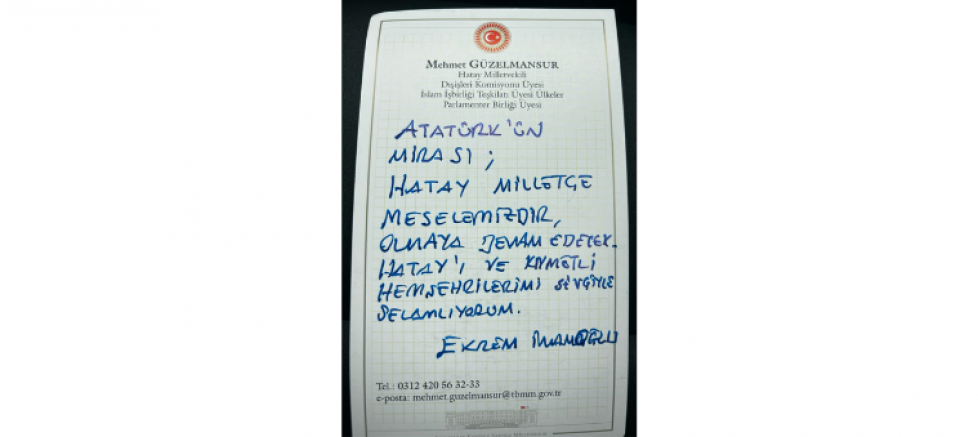 Mehmet GÜZELMANSUR
Hatay Milletvekili
Dışişleri Komisyonu Üyesi
İslam İşbirliği Teşkilatı Üyesi Ülkeler
Parlamenter Birliği Üyesi
ATATÜRK'ÜN
MİRASI;
HATAY MİLLETÇE
MESELEMİZDİR,
OLMAYA DEVAM EDECEK.
HATAY'I VE KIYMETLİ
HEMŞEHRİLERİMİ SEVGİYLE
SELAMLIYORUM.
EKREM İMAMOĞLU
Tel.: 0312 420 56 32-33
e-posta: mehmet.guzelmansur@tbmm.gov.tr